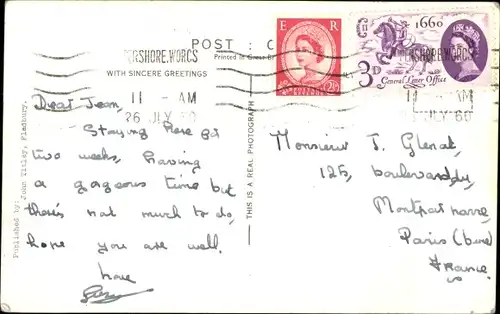 POST
Printed in Great
E R
1660
PERSHORE.WORCS
PERSHORE.WORCS
WITH SINCERE GREETINGS
3D
General Letter Office
11 - AM
26 JLY 60
11 AM
JLY 60
Dear Jean,
Staying here for
two weeks, having
a gorgeous time but
there's not much to do,
hope you are well.
love
Monsieur J. Glenat,
125, boulevard du
Montparnasse,
Paris
France.
THIS IS A REAL PHOTOGRAPH
Published by: John Titley, Fladbury.